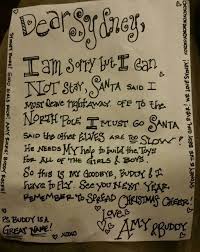 Dear Sydney,
I am sorry but I can
Not stay, Santa said I
must leave right away. Off to the
North Pole I must go Santa
said the other elves are too slow!
He needs my help to build the toys
for all of the girls & boys.
So this is my goodbye, Buddy & I
have to fly. See you next year.
Remember to spread Christmas cheer!
Love
Amy & Buddy
P.S Buddy is a
Great name!
xoxo